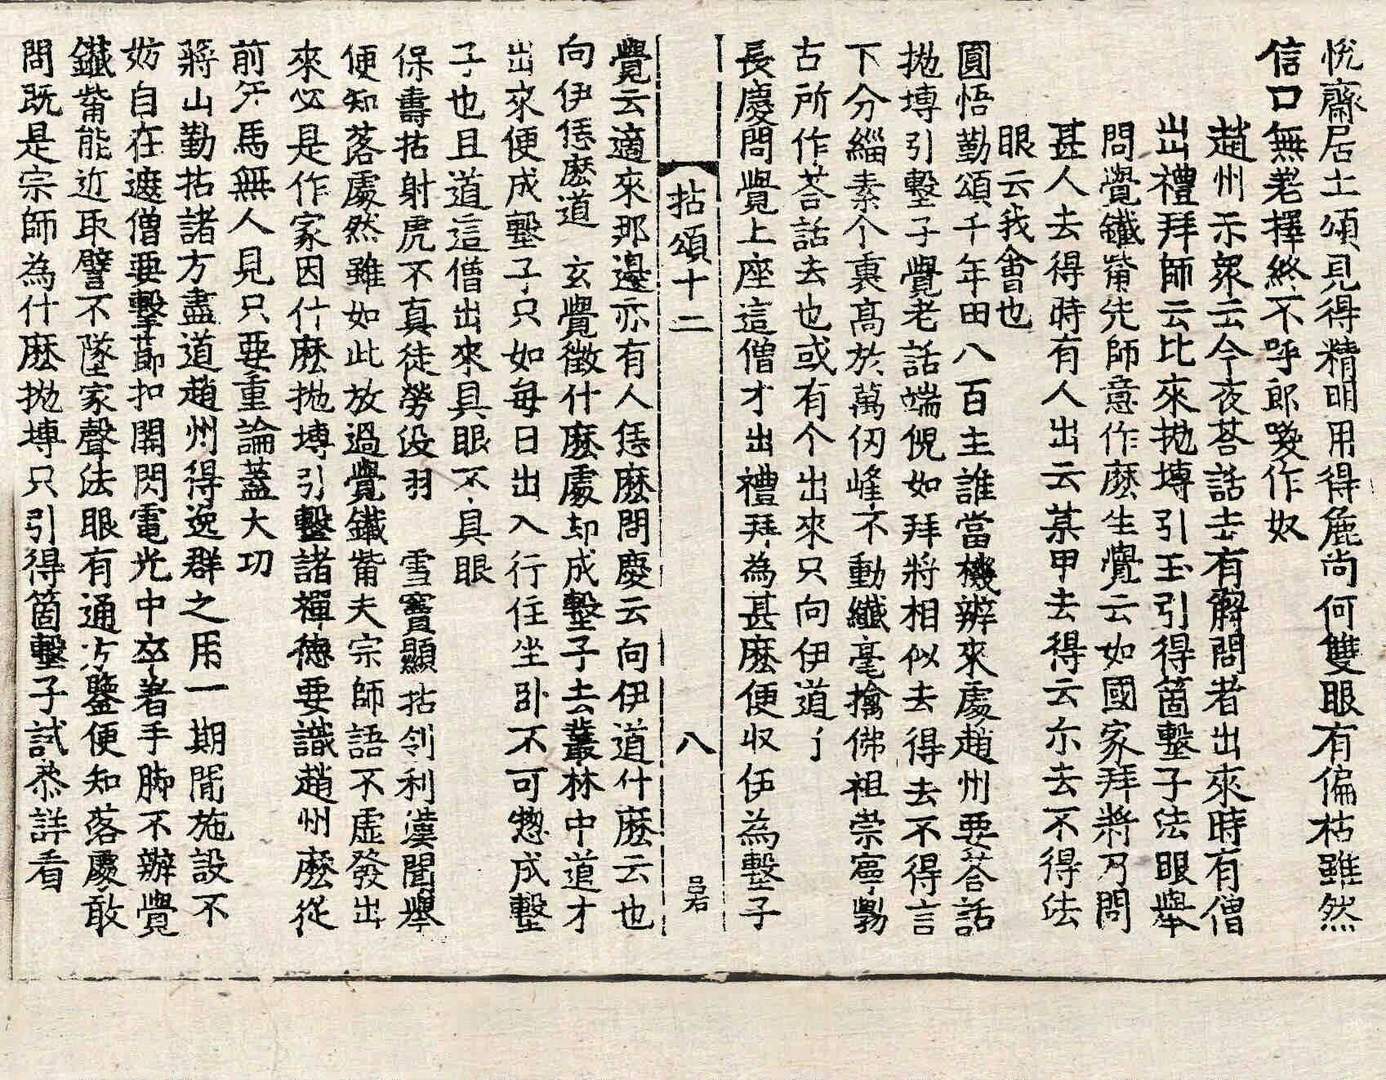 悅齋居士頌見得精明用得麁尚何雙眼有偏枯雖然
信口無老擇終不呼郎喚作奴
趙州示衆云今夜荅話去有解問者出來時有僧
出禮拜師云比來抛塼引玉引得箇墼子法眼舉
問覺鐵觜先師意作麽生覺云如國家拜將乃問
甚人去得時有人出云某甲去得云尒去不得法
眼云我會也
圓悟勤頌千年田八百主誰當機辨來處趙州要荅話
抛塼引墼子覺老話端倪如拜將相似去得去不得言
下分緇素个裏高於萬仞峰不動纖毫擒佛祖崇寧勤
古所作荅話去也或有个出來只向伊道了
長慶問覺上座這僧才出禮拜爲甚麽便収伊爲墼子
拈頌十二
八
呂右
覺云適來那邊亦有人恁麽問慶云向伊道什麽云也
向伊恁麽道 玄覺徵什麽處却成墼子去叢林中道才
出來便成墼子只如每日出入行住坐卧不可惣成墼
子也且道這僧出來具眼不具眼
保壽拈射虎不真徒勞没羽 雪竇顯拈伶利漢聞舉
便知落處然雖如此放過覺鐵觜夫宗師語不虛發出
來必是作家因什麽抛塼引墼諸禪德要識趙州麽從
前汗馬無人見只要重論蓋大功
蔣山勤拈諸方盡道趙州得逸群之用一期閒施設不
妨自在遮僧要擊節扣關閃電光中卒著手脚不辦覺
鐵觜能近取譬不墜家聲法眼有通方鑒便知落處敢
問旣是宗師爲什麽抛塼只引得箇墼子試叅詳看